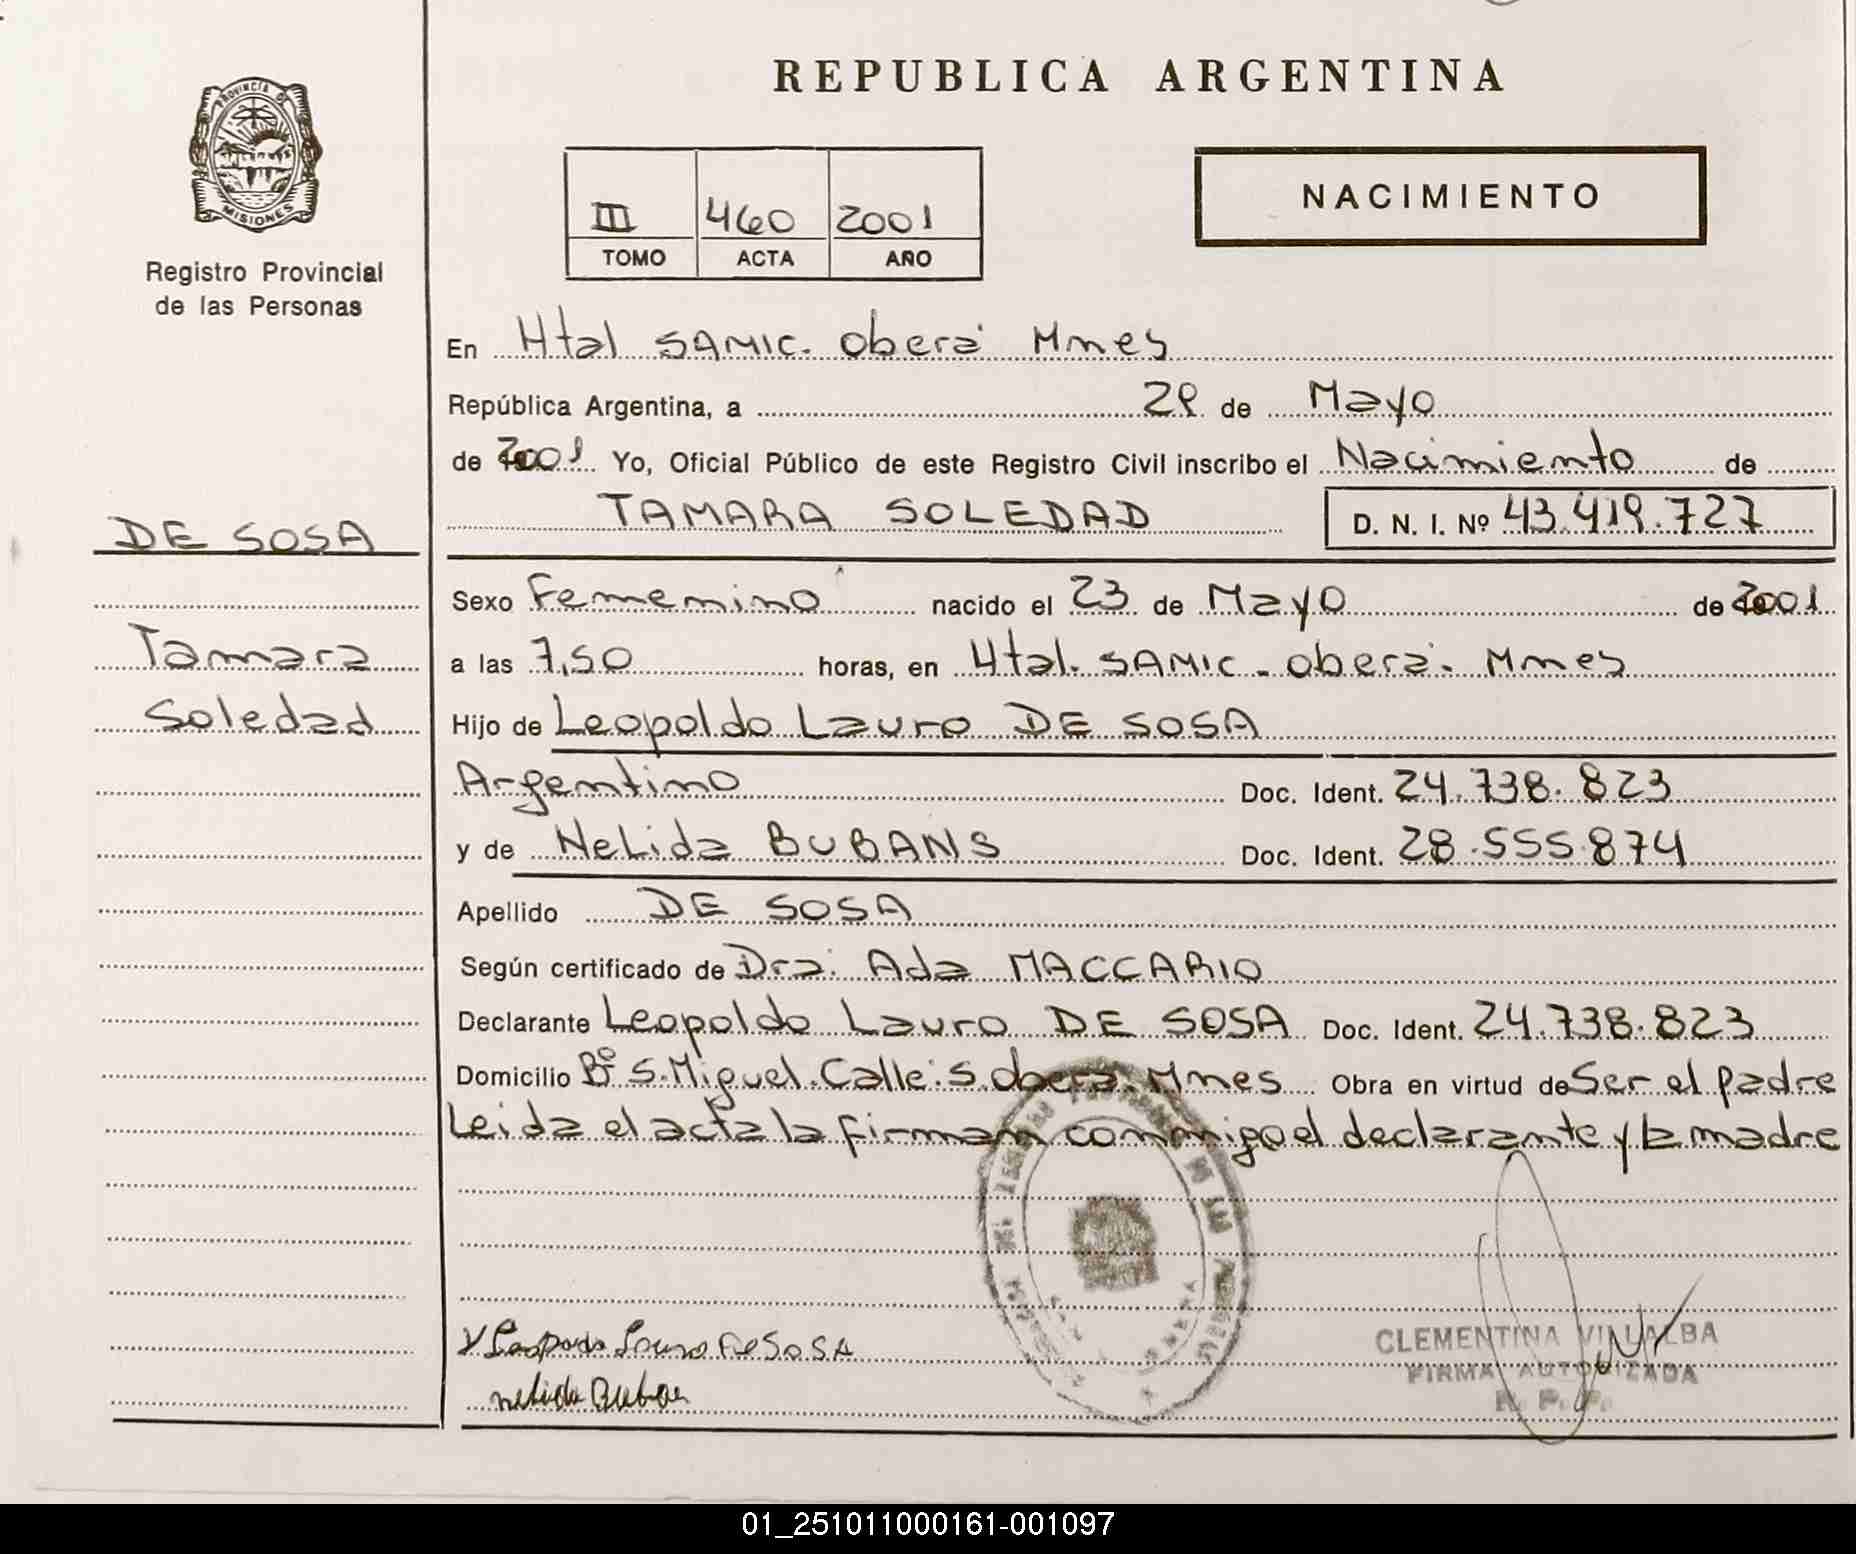 REPUBLICA ARGENTINA
PROVINCIA DE
MISIONES
Registro Provincial
de las Personas
III 460 2001
TOMO ACTA AÑO
NACIMIENTO
En Htal SAMIC. oberá Mnes
República Argentina, a 29 de Mayo
de 2001 Yo, Oficial Público de este Registro Civil inscribo el Nacimiento de
TAMARA SOLEDAD D. N. I. Nº 43.419.727
DE SOSA
Tamara
Soledad
Sexo Femenino nacido el 23 de Mayo de 2001
a las 7,50 horas, en Htal. SAMIC - oberá. Mnes
Hijo de Leopoldo Lauro DE SOSA
Argentino Doc. Ident. 24.738.823
y de NeLida BUBANS Doc. Ident. 28.555.874
Apellido DE SOSA
Según certificado de Dra. Ada MACCARIO
Declarante Leopoldo Lauro DE SOSA Doc. Ident. 24.738.823
Domicilio Bº S.Miguel.Calle:S.oberá.Mnes Obra en virtud de Ser el padre
Leida el acta la firman conmigo el declarante y la madre
CLEMENTINA VILLALBA
FIRMA AUTORIZADA
R. P. P.
01_251011000161-001097